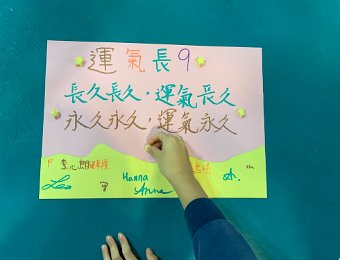 運氣長9
長久長久,運氣長久
永久永久,運氣永久
李心朗
Leo Hanna
Anna